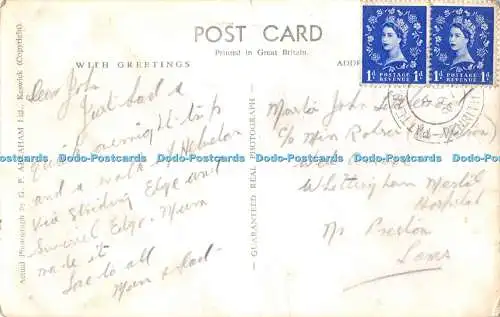 POST CARD
Printed in Great Britain.
WITH GREETINGS
Actual Photograph by G. P. ABRAHAM Ltd., Keswick (Copyright).
Dear John
Just had a
quick overnight trip
and a walk up Helvelyn
via Striding Edge and
Swirrel Edge. Mum
made it
Love to all
Mum & Dad
GUARANTEED REAL PHOTOGRAPH
Master John
C/o Miss
Whittingham Mental
Hospital
Nr Preston
Lancs
1d POSTAGE REVENUE 1d
1d POSTAGE REVENUE 1d
Dodo-Postcards Dodo-Postcards Dodo-Postcards Dodo-Postcards Dodo-Postcards